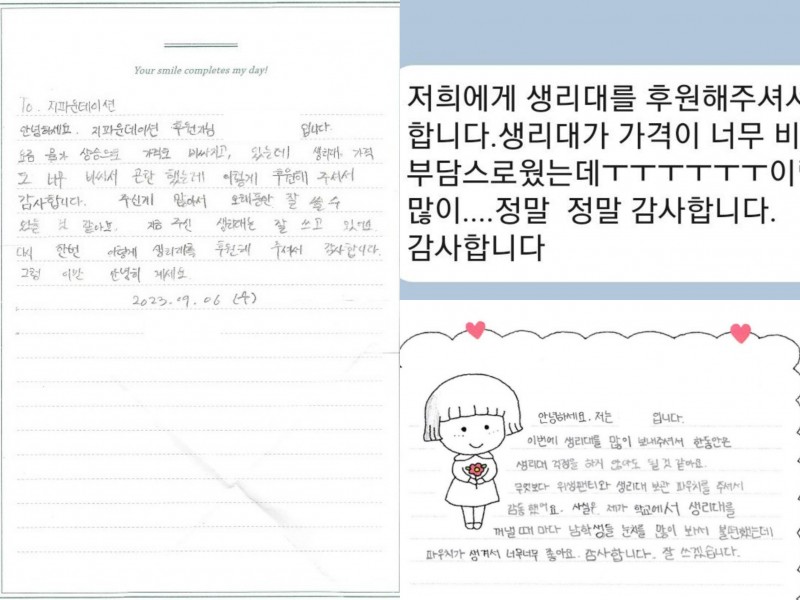 Your smile completes my day!
To. 지파운데이션
안녕하세요. 지파운데이션 후원자님 입니다.
요즘 물가 상승으로 가격도 비싸지고, 있는데 생리대 가격
도 너무 비싸서 곤란 했는데 이렇게 후원해 주셔서
감사합니다. 주신게 많아서 오래동안 잘 쓸 수
있을 것 같아요. 지금 주신 생리대는 잘 쓰고 있어요
다시 한번 이렇게 생리대를 후원해 주셔서 감사합니다.
그럼 이만 안녕히 계세요
2023.09.06 (수)
저희에게 생리대를 후원해주셔서
합니다.생리대가 가격이 너무 비
부담스로웠는데ㅜㅜㅜㅜㅜㅜ이렇
많이....정말 정말 감사합니다.
감사합니다
안녕하세요. 저는 입니다.
이번에 생리대를 많이 보내주셔서 한동안은
생리대 걱정을 하지 않아도 될 것 같아요.
무엇보다 위생팬티와 생리대 보관 파우치를 주셔서
감동했어요. 사실은 제가 학교에서 생리대를
꺼낼 때 마다 남학생들 눈치를 많이 봐서 불편했는데
파우치가 생겨서 너무너무 좋아요. 감사합니다. 잘 쓰겠습니다.